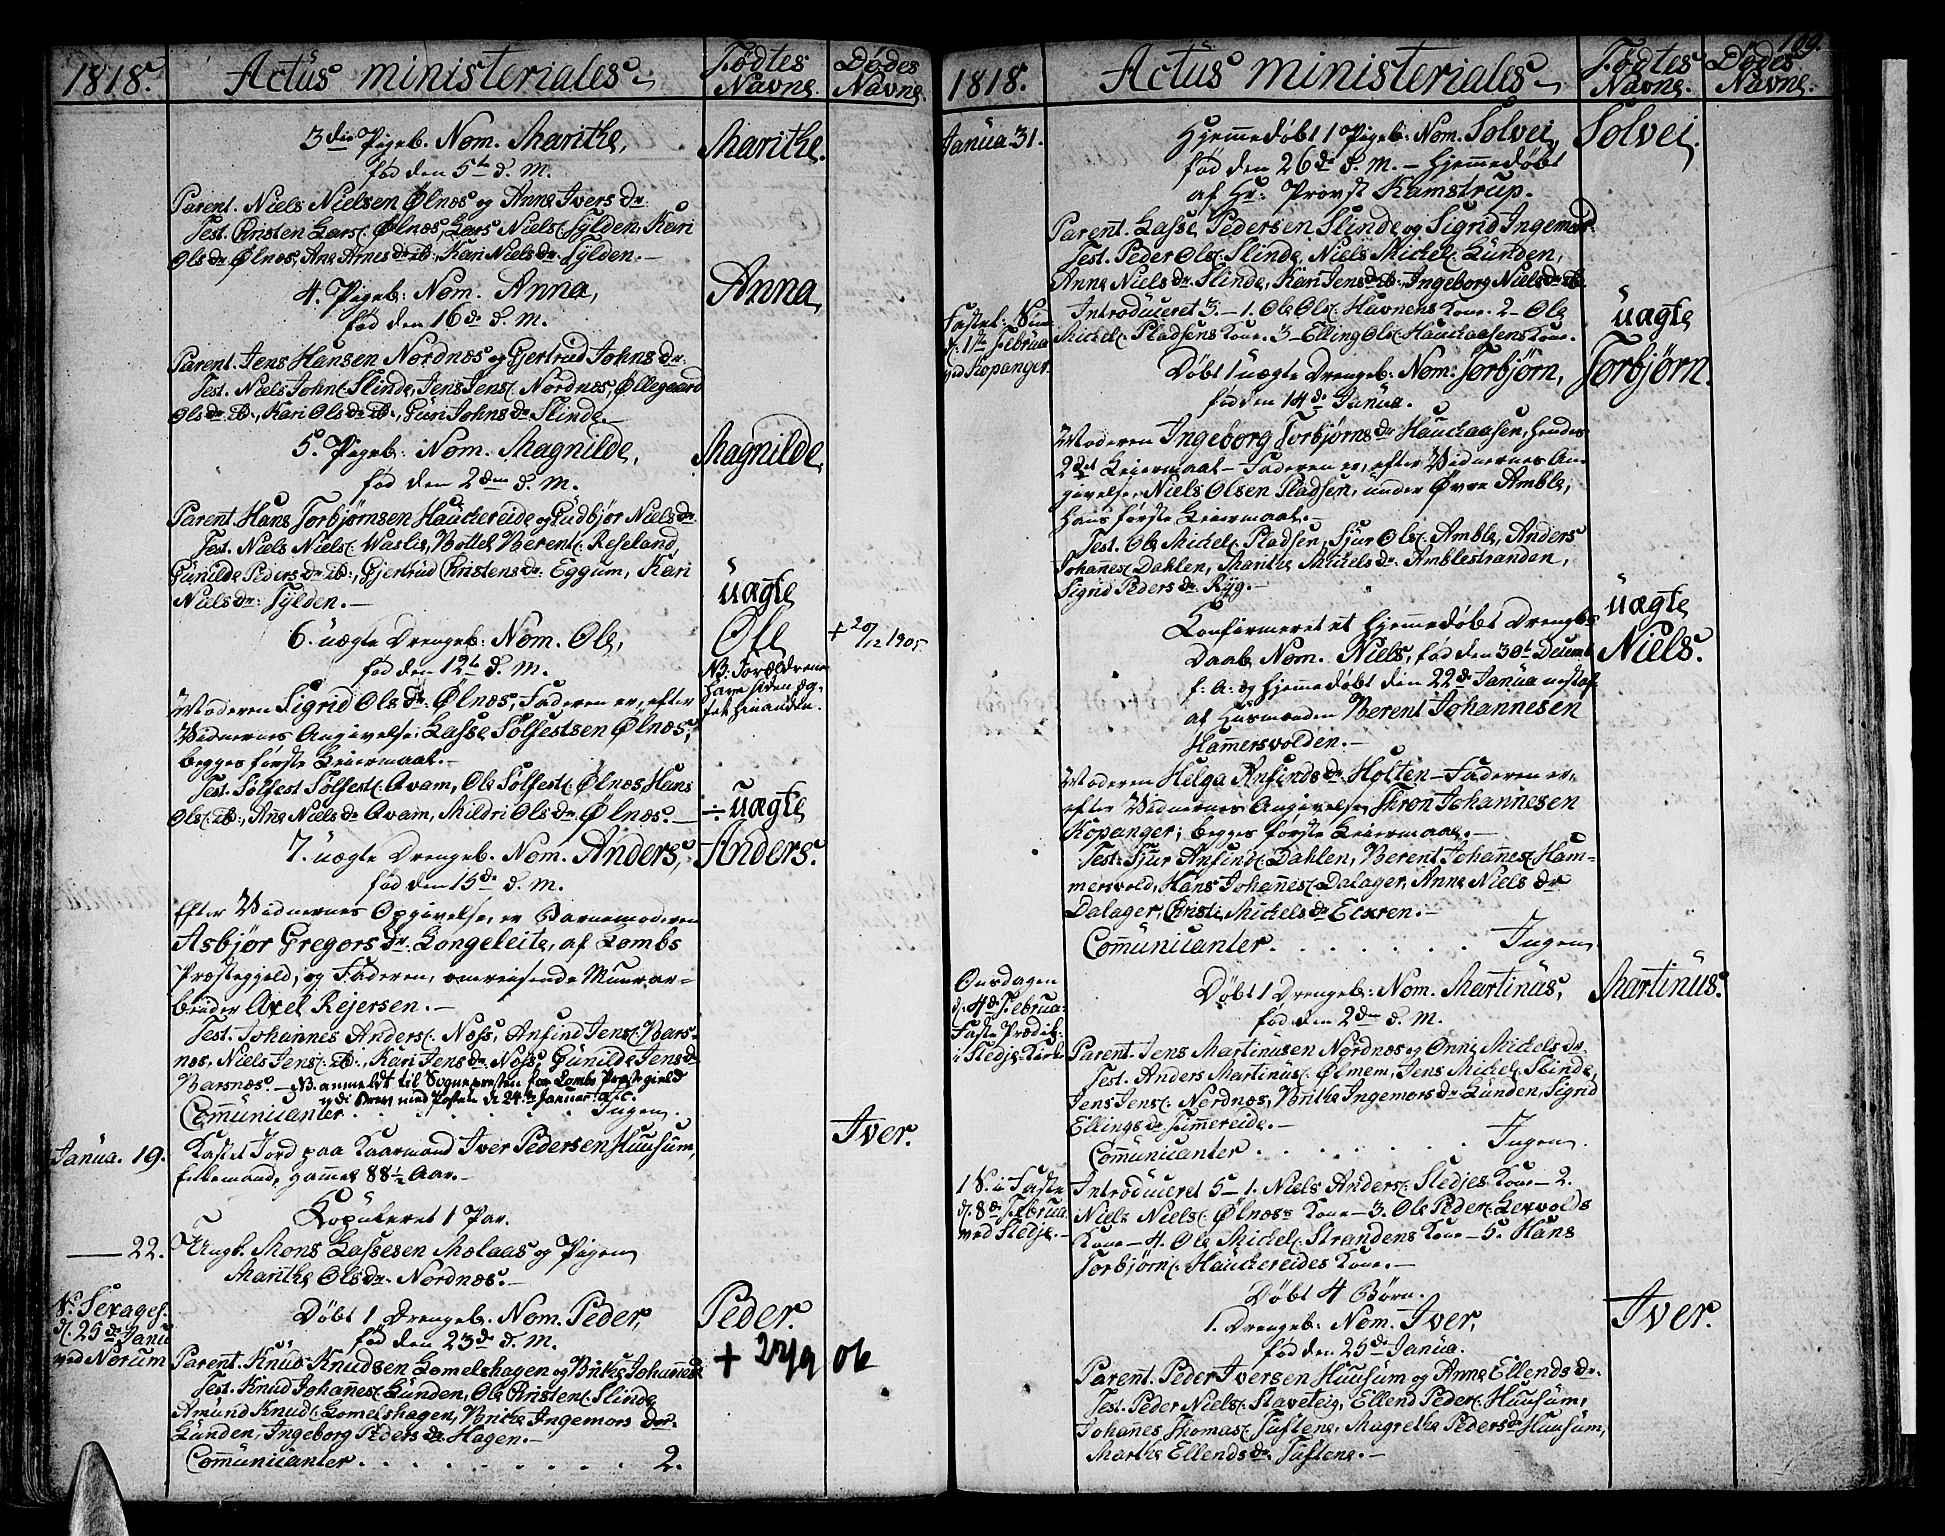 1818. Actus ministeriales Fødtes Navne. Dødes Navne.
3die Pigeb. Nom. Marithe, Marithe.
fød den 5te d. M.
Parent. Niels Nielsen Ølnæs og Anne Ivers dr.
Test. Christen Lars: Ølnæs, Lars Niels: Sylden, Kari
Ols dr Ølnæs, Ane Arnes dr ib:, Kari Niels dr Sylden.
4. Pigeb: Nom. Anna, Anna
fød den 16de d. M.
Parent. Jens Hansen Nordnæs og Gjertrud Johns dr.
Test. Niels John: Slinde, Jens Jens: Nordnæs, Øllegaard
Ols dr ib:, Kari Ols dr ib:, Guri Johns dr Slinde.
5. Pigeb: Nom. Magnilde, Magnilde,
fød den 2den d. M.
Parent. Hans Torbjørnsen Hauckereide og Gudbjør Niels dr.
Test. Niels Niels: Waslie, Bottel Berent: Reseland
Gunilde Peders dr ib:, Gjertrud Christens dr. Eggum, Kari
Niels dr: Sylden.
uægte
6. uægte Drengeb: Nom. Ole, Ole + 20/12 1905
fød den 12te d. M. NB. Forældrene
have siden æg-
tet hinanden.
Moderen Sigrid Ols dr. Ølnæs, Faderen er, efter
Vidnernes Angivelse: Lasse Sølfestsen Ølnæs,
begges første Leiermaal.
Test. Sølfest Sølfest: Qvam, Ole Sølfest: Ølnæs, Hans
Ols: ib:, Ane Niels dr Qvam, Mildri Ols dr Ølnæs. ÷ uægte
7. uægte Drengeb. Nom. Anders, Anders.
fød den 15de d. M.
Efter Vidnernes Opgivelse, er Barnemoderen
Asbjør Gregors dr. Longeleite, af Lombs
Præstegjeld, og Faderen, omreisende Muurar-
beider Axel Rejersen.
Test. Johannes Anders: Noss, Anfind Jens: Bars-
næs, Niels Jens: ib:, Kari Jens dr Noss, Gunilde Jens dr
Barsnæs. NB anmeldt til Sognepresten for Lombs Præstegield
ved Brev med Posten d 24de Januar:
Comunicanter . . . Ingen.
Janua. 19. Kastet Jord paa Kaarmand Iver Pedersen Huusum, Iver.
Enkemand, gammel 88½ Aar.
Kopuleret 1 Par.
— 22. Ungk. Mons Lassesen Mælaas og Pigen
Marithe Ols dr. Nordnæs.
S. Sexages.
d. 25de Janu
ved Norum
Døbt 1 Drengeb. Nom. Peder, Peder.
fød den 23de d. M.
Parent. Knud Knudsen Lomelshagen og Brithe Johannes dr + 27/9 06
Test. Knud Johanes: Lunden, Ole Christen: Slinde
Amund Knud: Lomelshagen, Brithe Ingemors dr.
Lunden, Ingeborg Peders dr Hagen.
Comunicanter . . . 2.
109.
1818. Actus ministeriales Fødtes Navne. Dødes Navne.
Janua 31. Hjemmedøbt 1 Pigeb: Nom. Solvei, Solvei.
fød den 26de d. M. – Hjemmedøbt
af Hr: Provst Kamstrup.
Parent. Lasse Pedersen Slinde og Sigrid Ingemors
Test. Peder Ols: Slinde, Niels Mickel: Lunden,
Anne Niels dr. Slinde, Kari Jens dr ib:, Ingeborg Niels dr ib.
Fastel: Sön
d. 1ste Februa
ved Kopanger.
Introduceret 3. – 1. Ole Ols: Havnens Kone. 2 – Ole uægte
Mickel: Pladsens Kone. 3 – Elling Ols: Hauckaasens Kone.
Døbt 1 uægte Drengeb: Nom: Torbjørn, Torbjørn.
fød den 14de Janua.
Moderen Ingeborg Torbjørns dr Hauckaasen, hendes
2det Leiermaal – Faderen er, efter Vidnernes An-
givelse, Niels Olsen Pladsen, under Øvre Amble,
hans første Leiermaal.
Test. Ole Mickel: Pladsen, Sjur Ols: Amble, Anders
Johanes: Dahlen, Marithe Mickels dr. Amblestranden,
Sigrid Peders dr. Ryg. uægte
Konfirmeret et hjemmedøbt Drengeb:s
Daab, Nom. Niels, fød den 30te Decemb Niels.
f. A. og hjemmedøbt den 22de Janua næstaf
af Husmanden Berent Johannesen
Hamersvolden.
Moderen Helga Anfinds dr. Holten – Faderen er,
efter Vidnernes Angivelse, Thron Johannesen
Kopanger; begges første Leiermaal.
Test. Sjur Anfind: Dahlen, Berent Johanes: Ham-
mersvold, Hans Johanes: Dalager, Anne Niels dr
Dalager, Christi Mickels dr Eckren.
Comunicanter . . . Ingen.
Onsdagen
d. 4de Februa:
Faste Prædik:
i Stedje Kirke
Døbt 1 Drengeb: Nom. Martinus, Martinus.
fød den 2den d. M.
Parent. Jens Martinusen Nordnæs og Onni Mickels dr.
Test. Anders Martinus: Ølmem, Jens Mickel: Slinde,
Jens Jens: Nordnæs, Brithe Ingemors dr Lunden, Sigrid
Ellings dr. Fimmereide.
Comunicanter . . . Ingen.
1 S. i Faste
d. 8de Februa
ved Stedje.
Introduceret 5 – 1. Niels Anders: Stedjes Kone – 2.
Niels Niels: Ølnæss Kone – 3. Ole Peder: Lervolds
Kone – 4. Ole Mickel: Strandens Kone – 5. Hans
Torbjørn: Hauckereides Kone.
Døbt 4 Børn.
1. Drengeb. Nom. Iver, Iver.
fød den 25de Janua.
Parent. Peder Iversen Huusum og Anne Ellends dr.
Test. Peder Niels: Slaveteig, Ellend Peder: Huusum,
Johanes Thomas: Tuftene, Magrethe Peders dr Huusum,
Marthe Ellends dr. Tuftene.